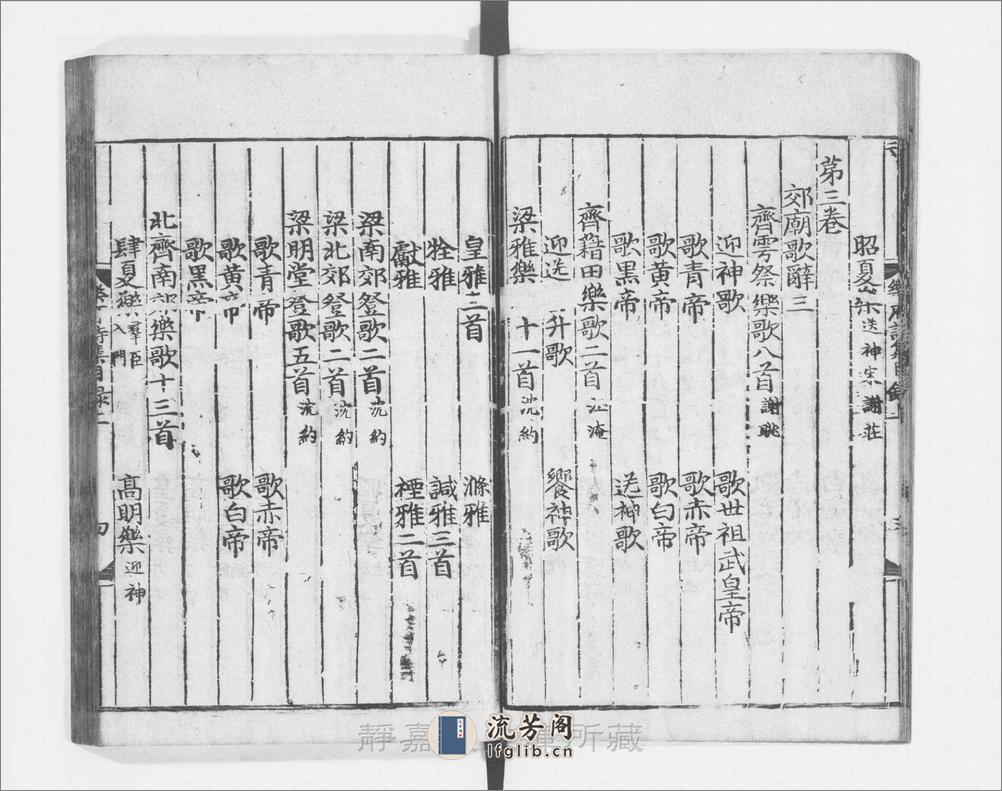 昭夏樂送神宋謝莊
第三卷
郊廟歌辭三
齊雩祭樂歌八首謝朓
迎神歌 歌世祖武皇帝
歌青帝 歌赤帝
歌黃帝 歌白帝
歌黑帝 送神歌
齊籍田樂歌二首江淹
迎送 升歌 饗神歌
梁雅樂 十一首沈約
皇雅三首 滌雅
牷雅 諴雅三首
獻雅 禋雅二首
梁南郊登歌二首沈約
梁北郊登歌二首沈約
梁明堂登歌五首沈約
歌青帝 歌赤帝
歌黃帝 歌白帝
歌黑帝
北齊南郊樂歌十三首
肆夏樂羣臣入門 高明樂迎神
樂府詩集目錄上
三
四
静嘉 所藏
流芳阁
lfglib.cn